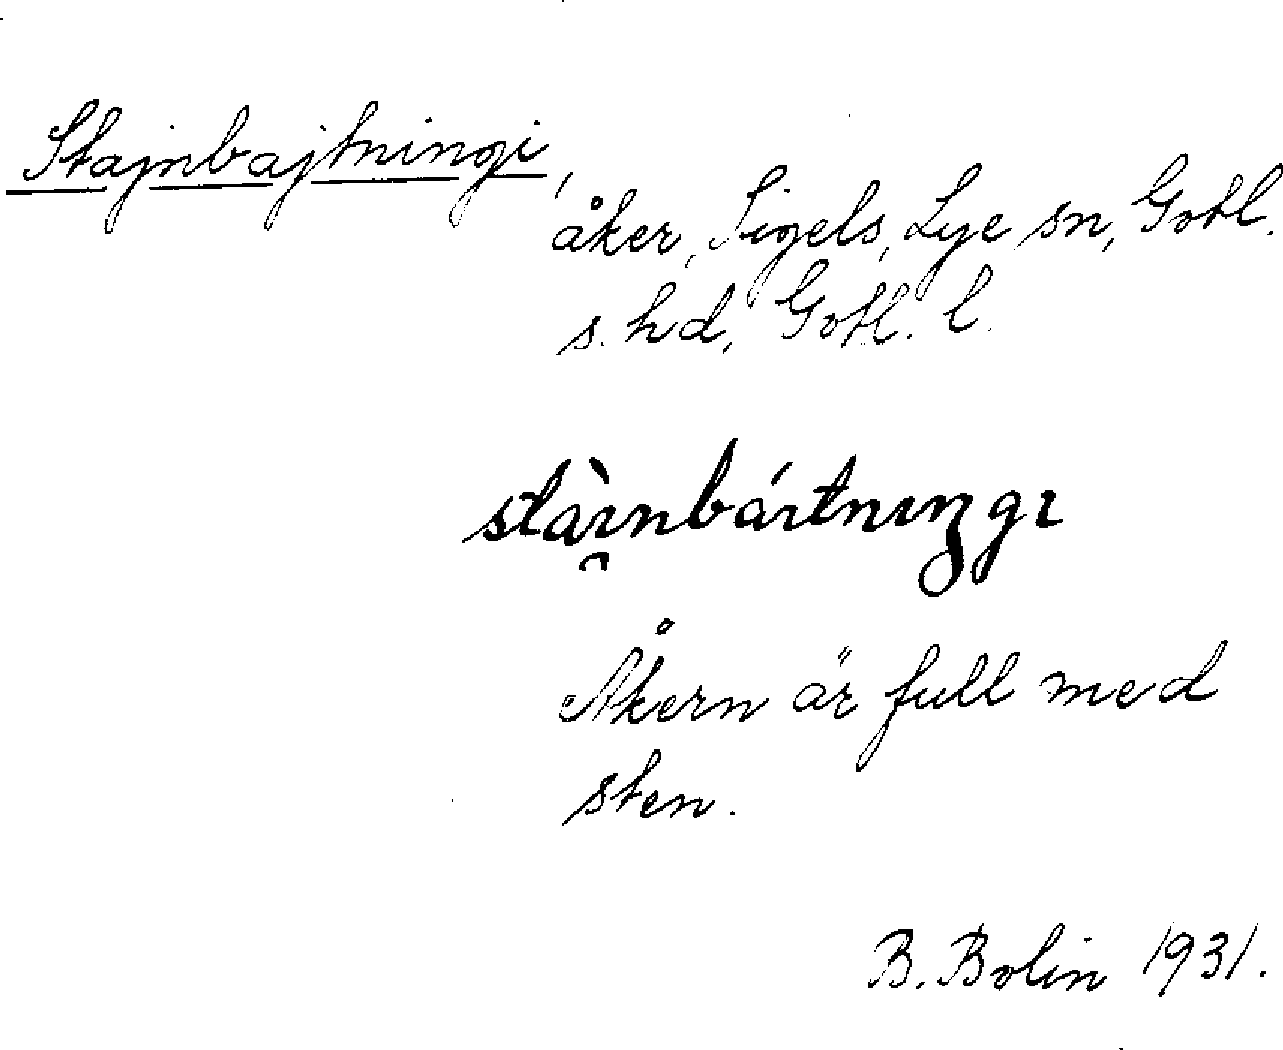 Stajnbajtningi,
åker, Sigels, Lye sn, Gotl.
s. hd, Gotl. l.
stàı̯nbáıtnıŋgı
Åkern är full med
sten.
B. Bolin 1931.